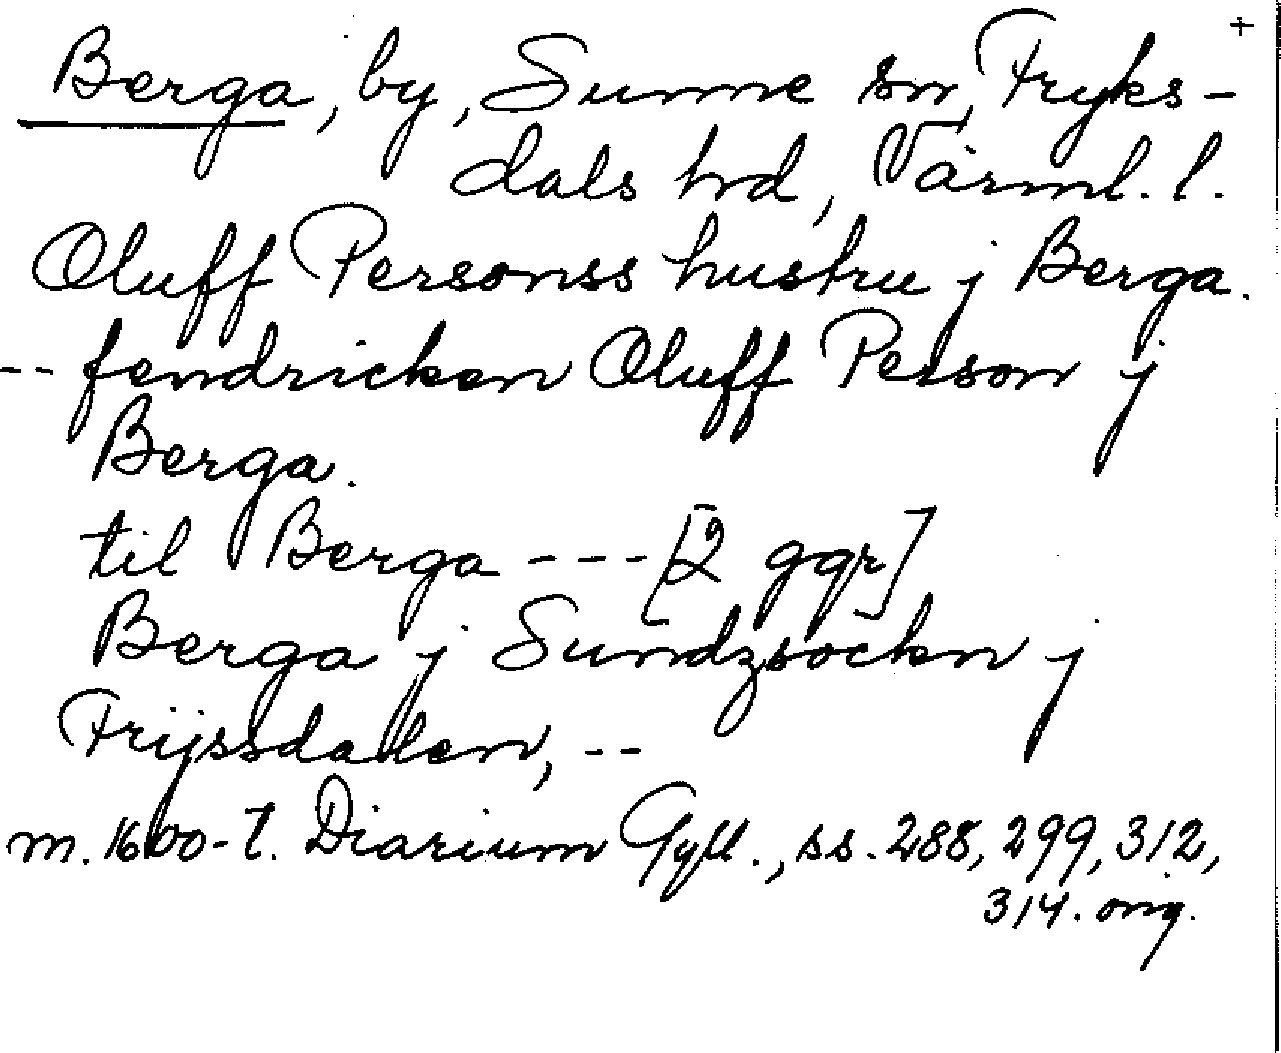 +
Berga, by, Sunne sn, Fryks-
dals hrd, Värml. l.
Oluff Personss hustru j Berga.
-- fendricken Oluff Person j
Berga.
til Berga --- [2 ggr]
Berga j Sundzsöckn j
Frijssdallen, --
m. 1600-t. Diarium Gyll., ss. 288, 299, 312,
314. orig.